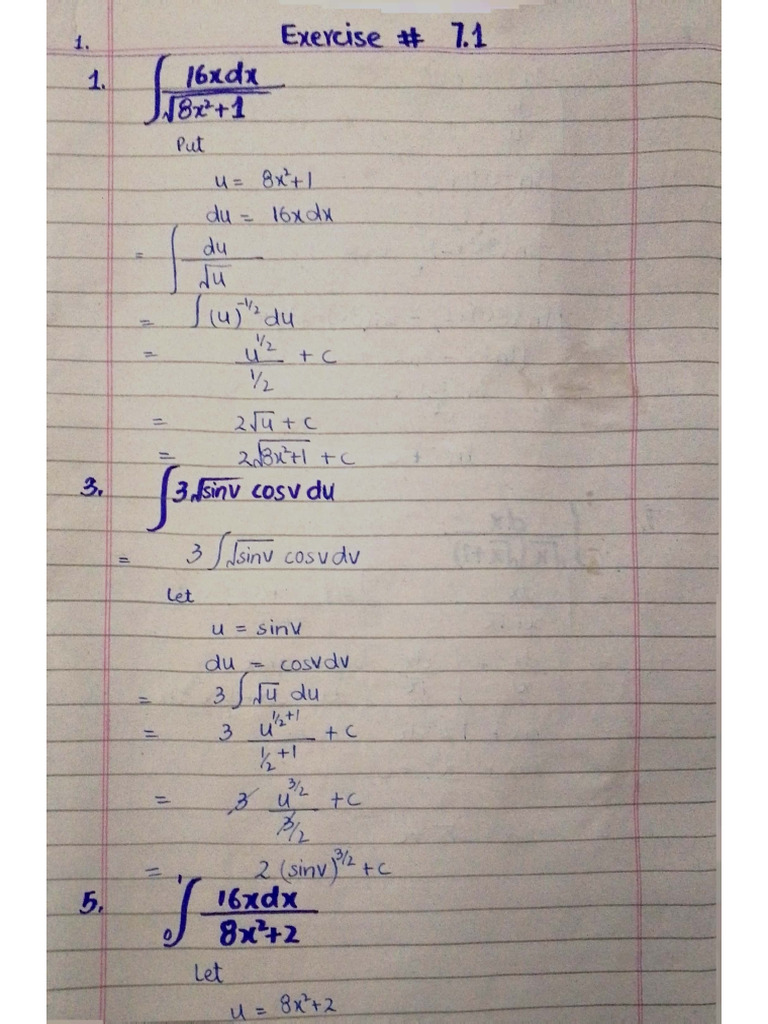 1. Exercise # 7.1
1. ∫ 16xdx / √8x²+1
Put
u = 8x²+1
du = 16xdx
= ∫ du / √u
= ∫(u)^-1/2 du
= u^1/2 / 1/2 + c
= 2√u + c
= 2√8x²+1 + c
3. ∫3√sinv cosv du
= 3∫√sinv cosvdv
Let
u = sinv
du = cosvdv
= 3∫√u du
= 3 u^1/2+1 / 1/2+1 + c
= 3 u^3/2 / 3/2 + c
= 2(sinv)^3/2 + c
5. ₀∫¹ 16xdx / 8x²+2
Let
u = 8x²+2